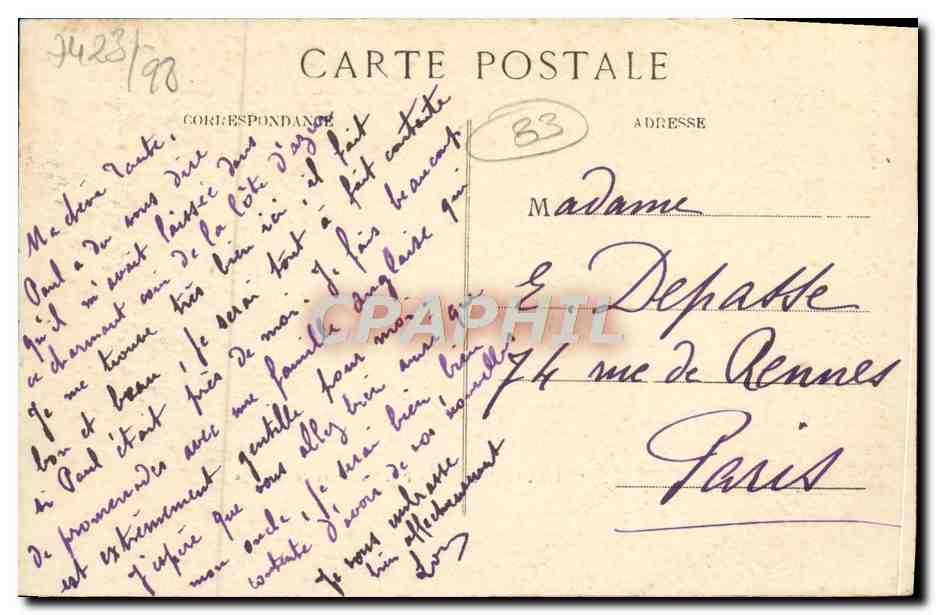 7423/98
CARTE POSTALE
CORRESPONDANCE
ADRESSE
83
Ma chère Tante,
Paul a du vous dire
qu'il m'avait laissée dans
ce charmant coin de la Côte d'azur
Je me trouve très bien ici, il fait
bon et beau, je serai tout à fait contente
si Paul était près de moi. Je fais beaucoup
de promenades avec une famille anglaise qui
est extrêmement gentille pour moi.
J'espère que vous allez bien ainsi que
mon oncle, je serai bien
contente d'avoir de vos nouvelles
Je vous embrasse
bien affectueusement
Madame
E. Depasse
74 rue de Rennes
Paris
CPAPHIL